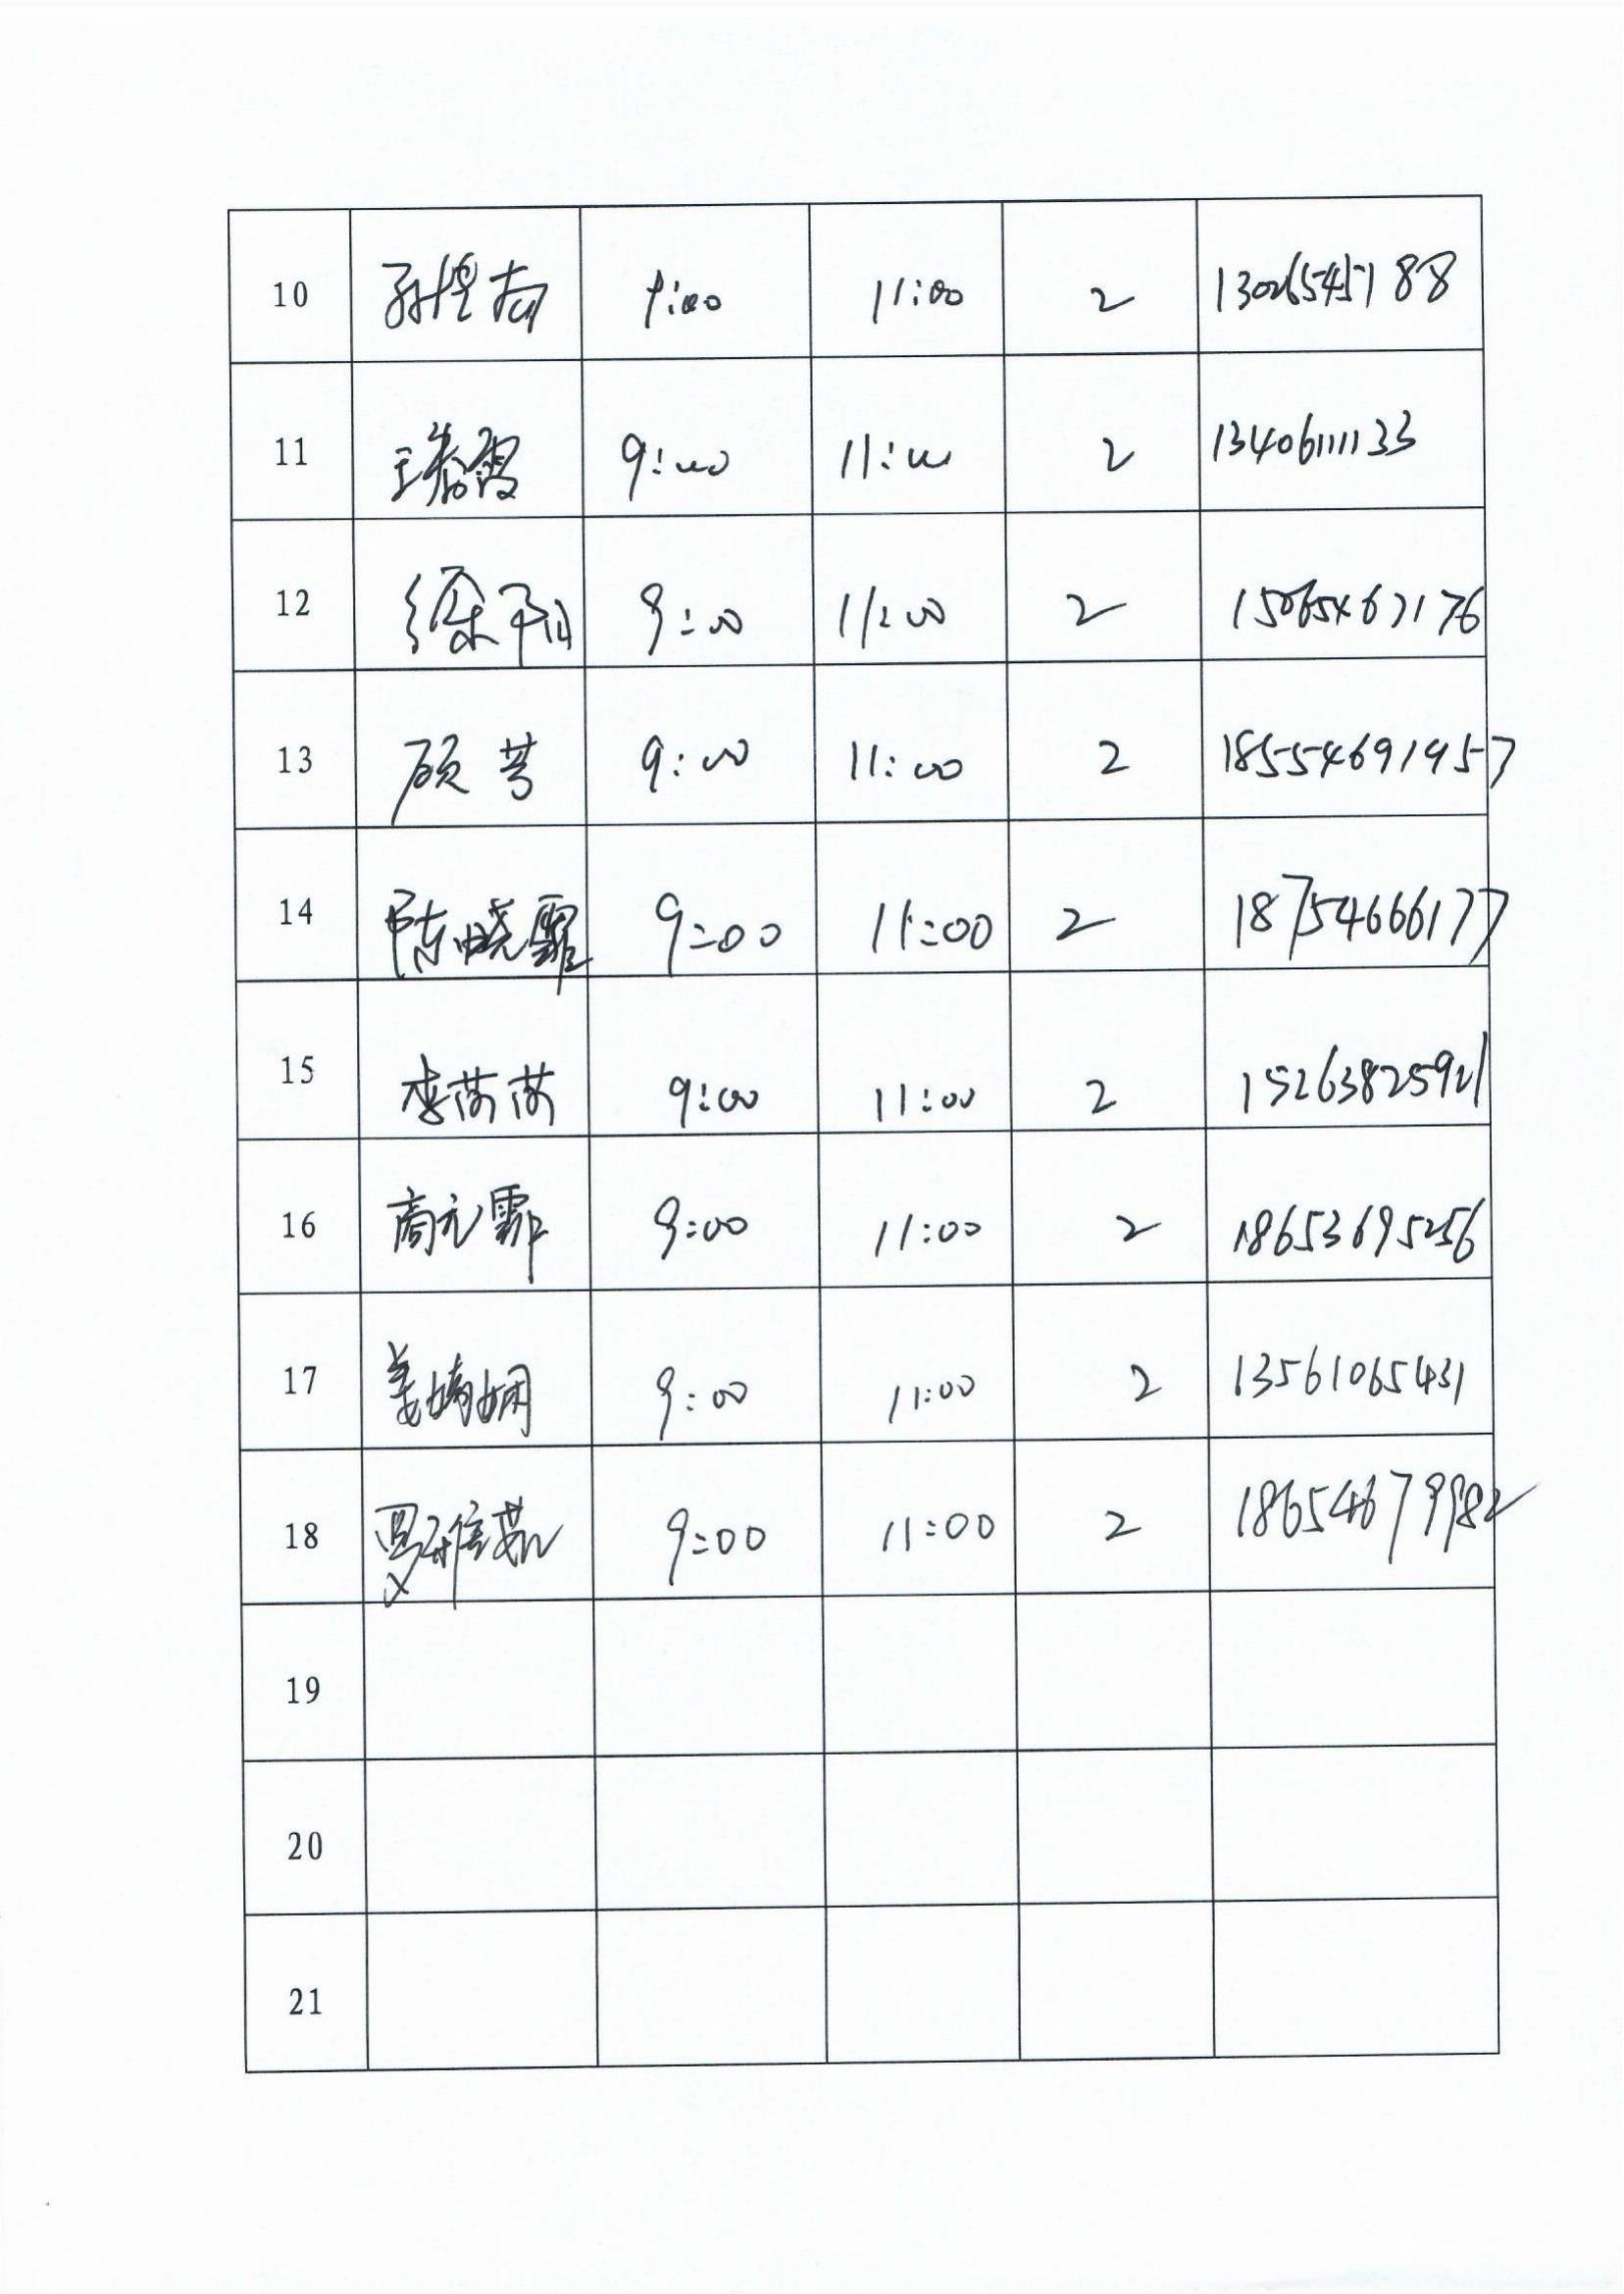 10 9:00 11:00 2
11 9:00 11:00 2 13406111133
12 徐 9:00 11:00 2 15065467176
13 顾芳 9:00 11:00 2 18554691957
14 陈晓霏 9:00 11:00 2 18754666177
15 李芮芮 9:00 11:00 2 15263825921
16 商元霏 9:00 11:00 2 18653695256
17 姜婧娴 9:00 11:00 2 13561065431
18 9:00 11:00 2 18654679982
19
20
21